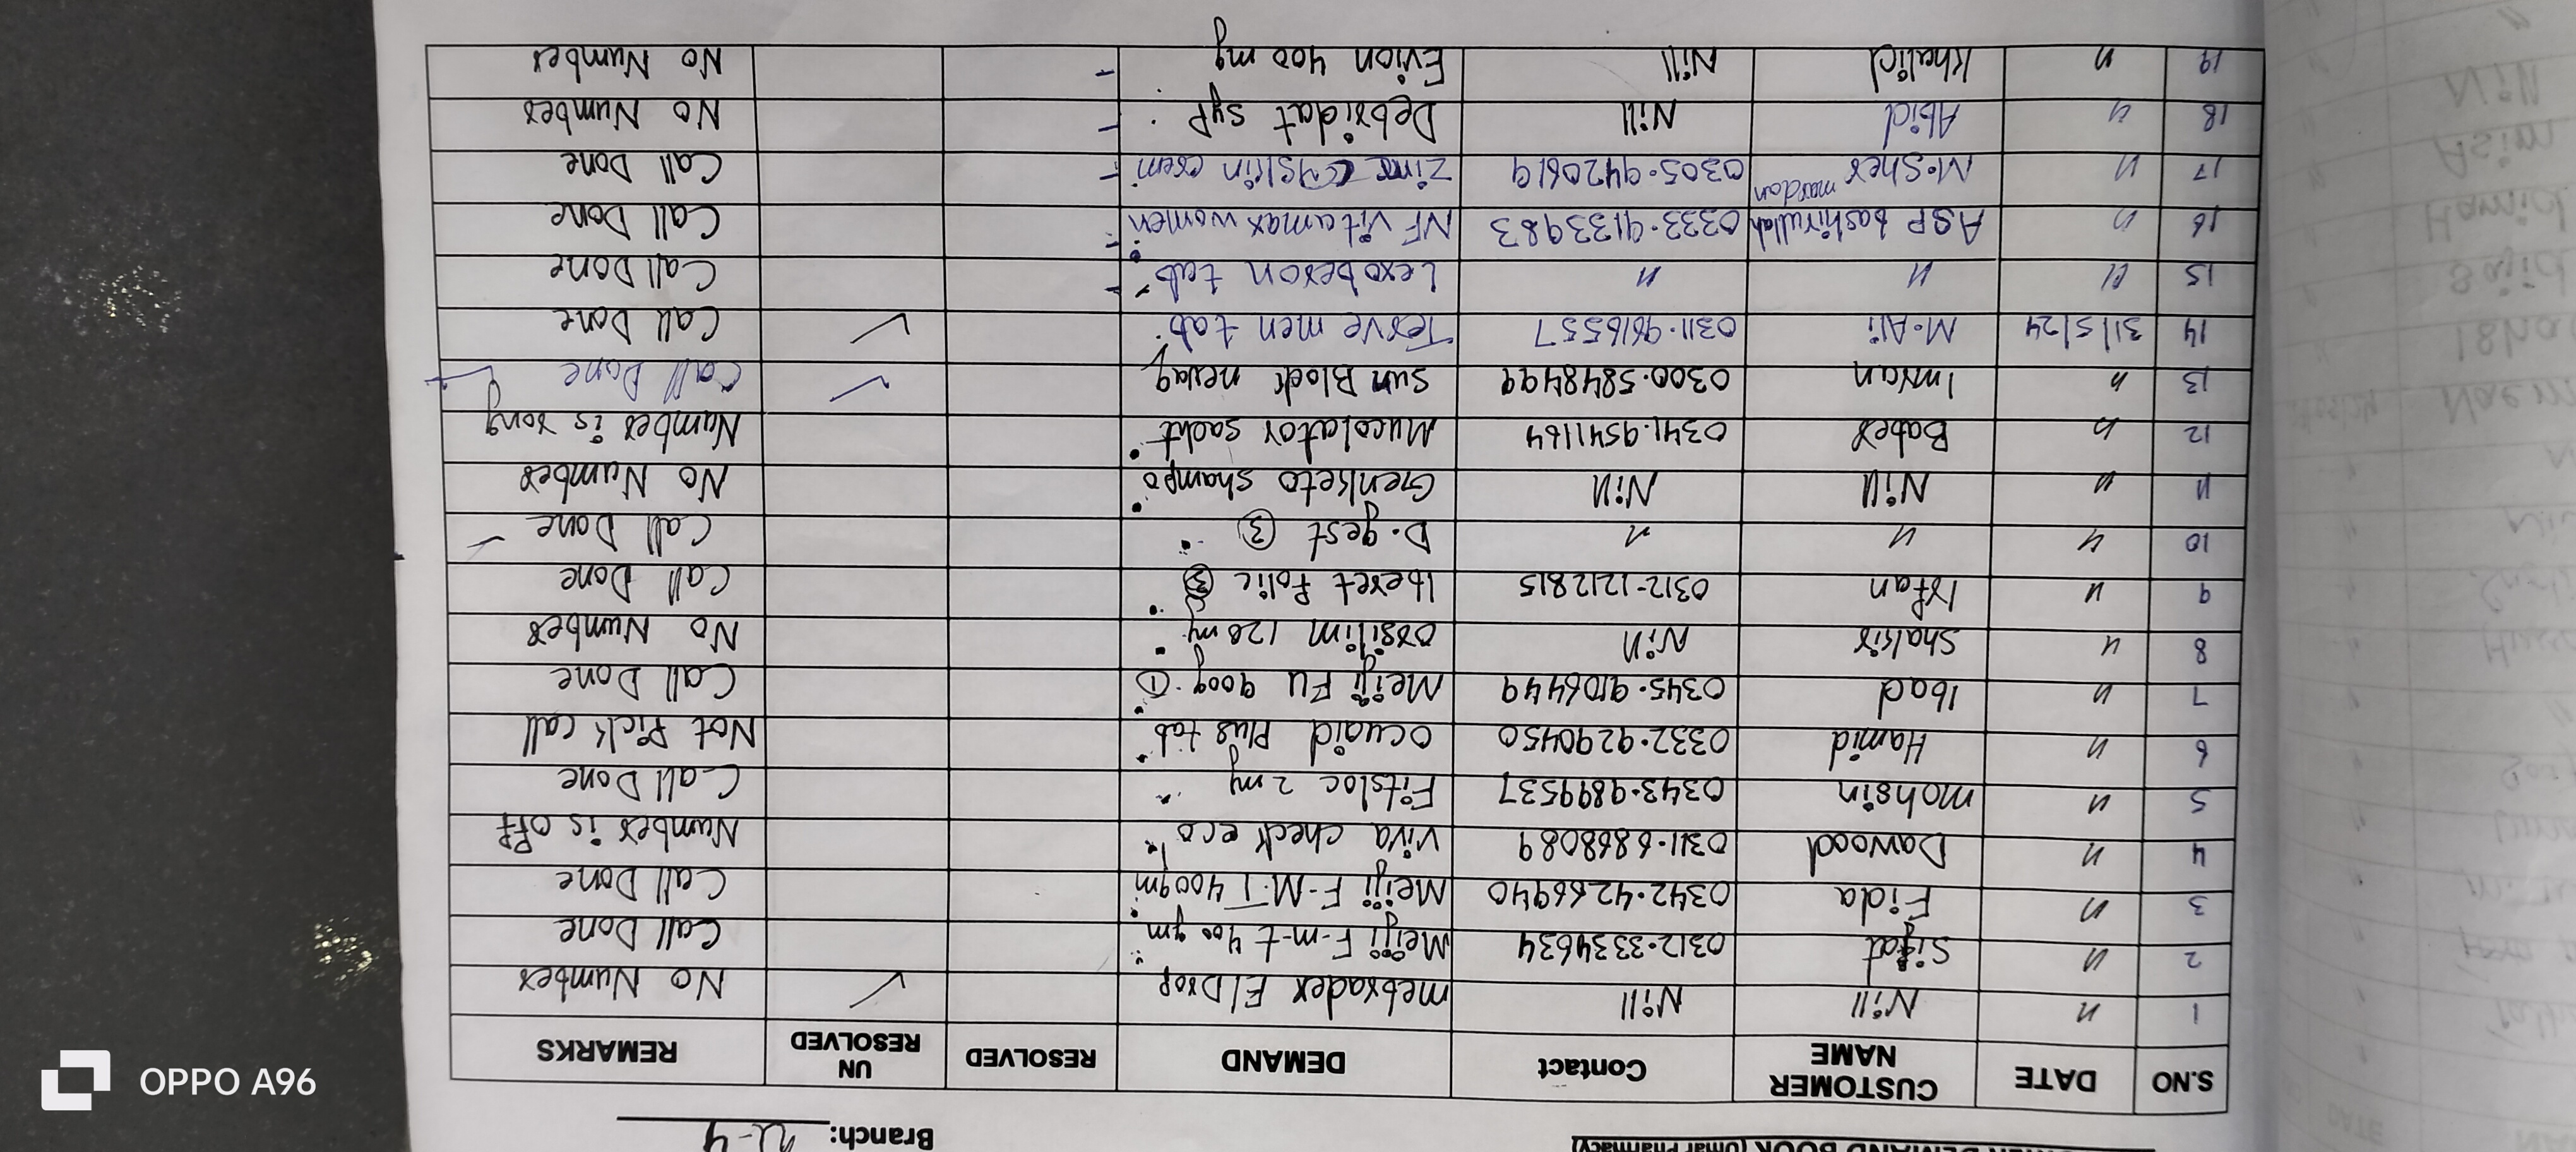 DEMAND BOOK (Umar Pharmacy)
Branch:
S.NO DATE CUSTOMER NAME Contact DEMAND RESOLVED UN RESOLVED REMARKS
1 " Nill Nill mebradex E/Drop ✓ No Number
2 " Sifat 0312-3334634 Meiji F-m-t 400 gm Call Done
3 " Fida 0342-4266940 Meiji F-M-T 400gm Call Done
4 " Dawood 0311-6868089 Viva check eco Number is off
5 " mohsin 0343-9899537 Fitsloc 2 mg Call Done
6 " Hamid 0332-9290450 Ocuaid Plus tab Not Pick Call
7 " Ibad 0345-9106449 Meiji FU 900g ① Call Done
8 " Shakir Nill Orsilim 120 mg No Number
9 " Irfan 0312-1212815 Iberet Folic ③ Call Done
10 " " " D-gest ③ Call Done
11 " Nill Nill Genketo shampo No Number
12 " Baber 0341-9541164 Mucolator sacht Number is rong
13 " Imran 0300-5848499 Sun Block ✓ Call Done
14 31/5/24 M-Ali 0311-9616557 Terve men tab ✓ Call Done
15 " " " Lexoberon tab Call Done
16 " ASP bashirullah 0333-9133983 NF Vitamax women Call Done
17 " M-Sher mardan 0305-9420619 Call Done
18 " Abid Nill Debridat syp No Number
19 " Khalid Nill Evion 400 mg No Number
Naem
Sajid
Hamid
Asim
Nill
DATE
OPPO A96